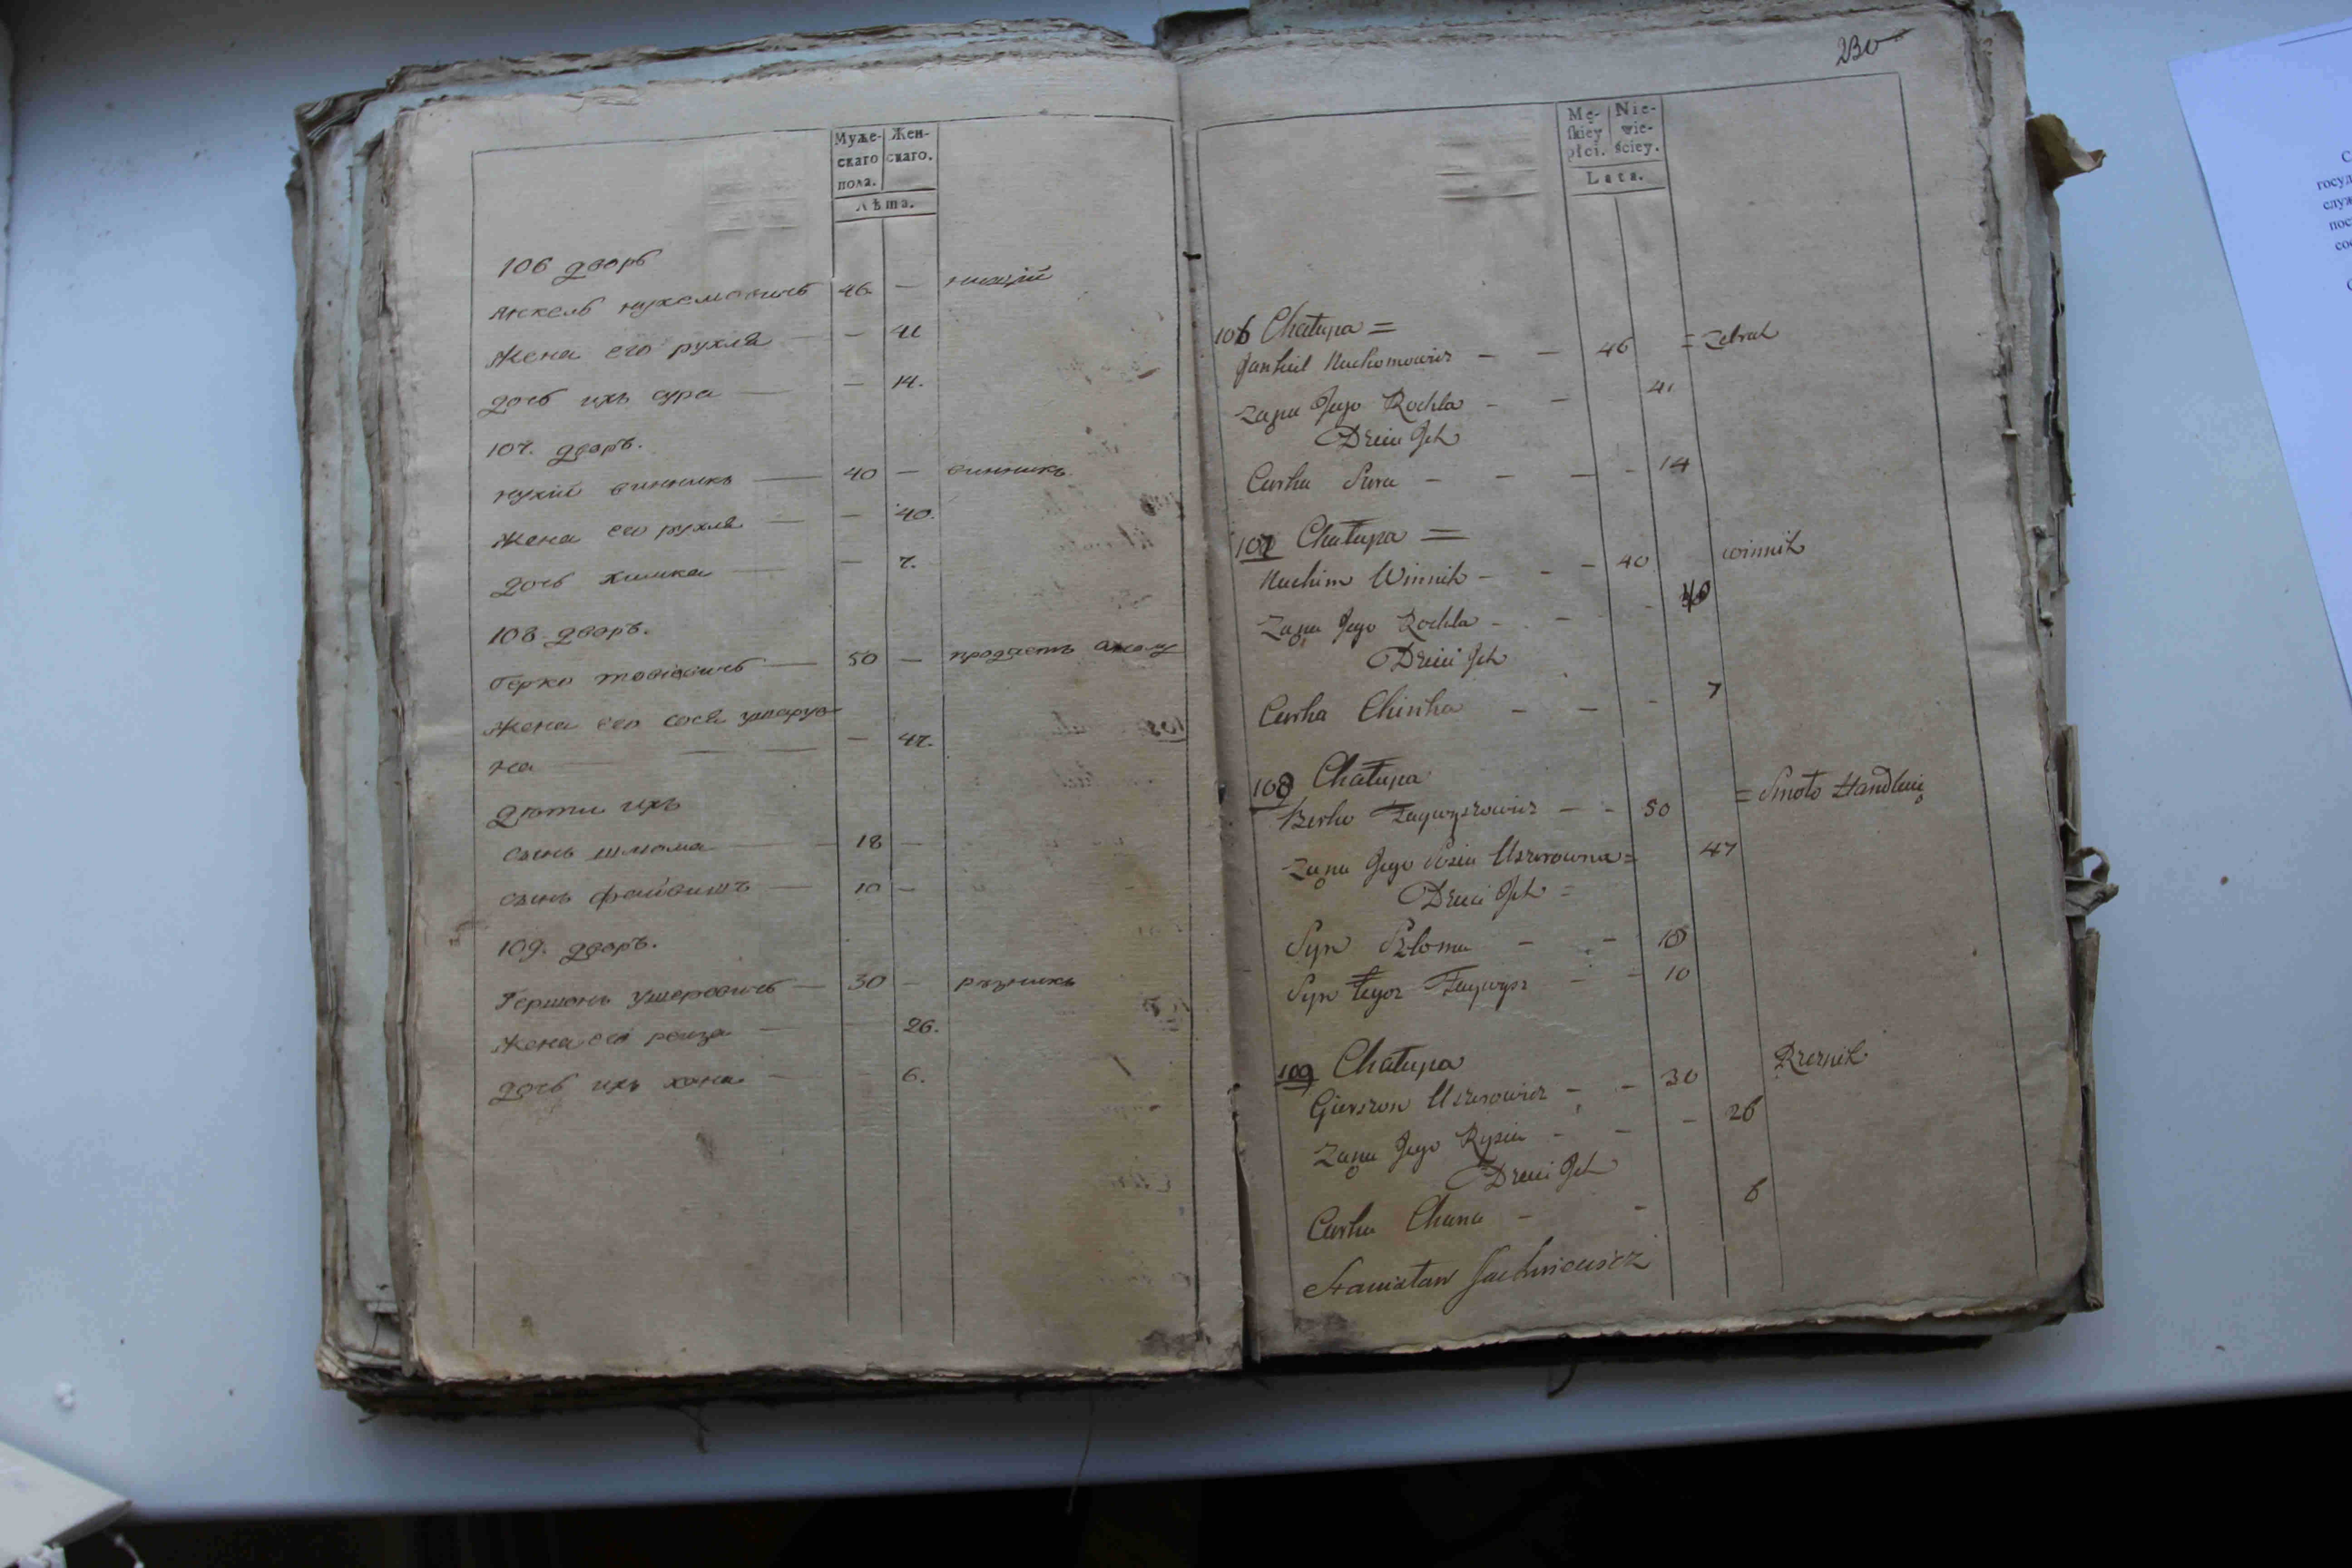 Муже-
скаго
пола.
Жен-
скаго.
Лѣта.
106 дворъ
Янкель нухемовичь — 46. — нищій
Жена его рухля — — 41
дочь ихъ сура — — 14.
107. дворъ.
нухим винникъ — 40 — винникъ
Жена его рухля — — 40.
дочь химка — — 7.
108 дворъ.
Герко — 50 — продаетъ смолу
Жена его сося ушерув
на — — 47.
дѣти ихъ
сынъ шлома — 18 —
сынъ файвишъ — 10 —
109. дворъ.
Гершонь ушеровичь — 30 — рѣзникъ
Жена его реиза — 26.
дочь ихъ хана — — 6.
230
Mę-
skiey
płci.
Nie-
wie-
ściey.
Lata.
106 Chałupa =
Jankiel Nuchomowicz — — 46 = Zebrak
Zona Jego Rochla — — 41
Dzieci Jch
Curka Sura — — — - 14
107 Chałupa =
Nuchim Winnik — - - 40 winnik
Zona Jego Rochla — - - 40
Dzieci Jch
Curka Chinka — — - 7
108 Chałupa
Berko Faywyszowicz — - 50 = Smoło Handluię
Zona Jego Sosia Uszerowna = 47
Dzieci Jch =
Syn Szloma — - 18
Syn Faywysz — - 10
109 Chałupa
Gierszon Uszerowicz — - 30 Rzeznik
Zona Jego Ryzia — — - 26
Dzieci Jch
Curka Chana — - 6
Stanisław